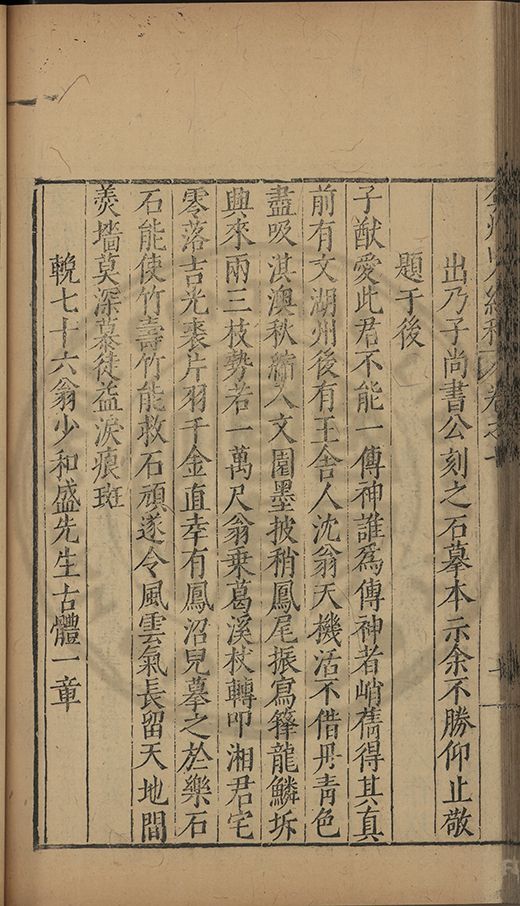 出乃子尚書公刻之石摹本示余不勝仰止敬
題于後
子猷愛此君不能一傳神誰為傳神者峭蒨得其真
前有文湖州後有王舍人沈翁天機活不借丹青色
盡吸淇澳秋縮入文園墨披稍鳳尾振寫籜龍鱗坼
興來兩三枝勢若一萬尺翁乗葛溪杖轉叩湘君宅
零落吉光裘片羽千金直幸有鳳沼兒摹之於樂石
石能使竹壽竹能救石頑遂令風雲氣長留天地間
羙墻莫深慕徒益淚痕斑
輓七十六翁少和盛先生古體一章